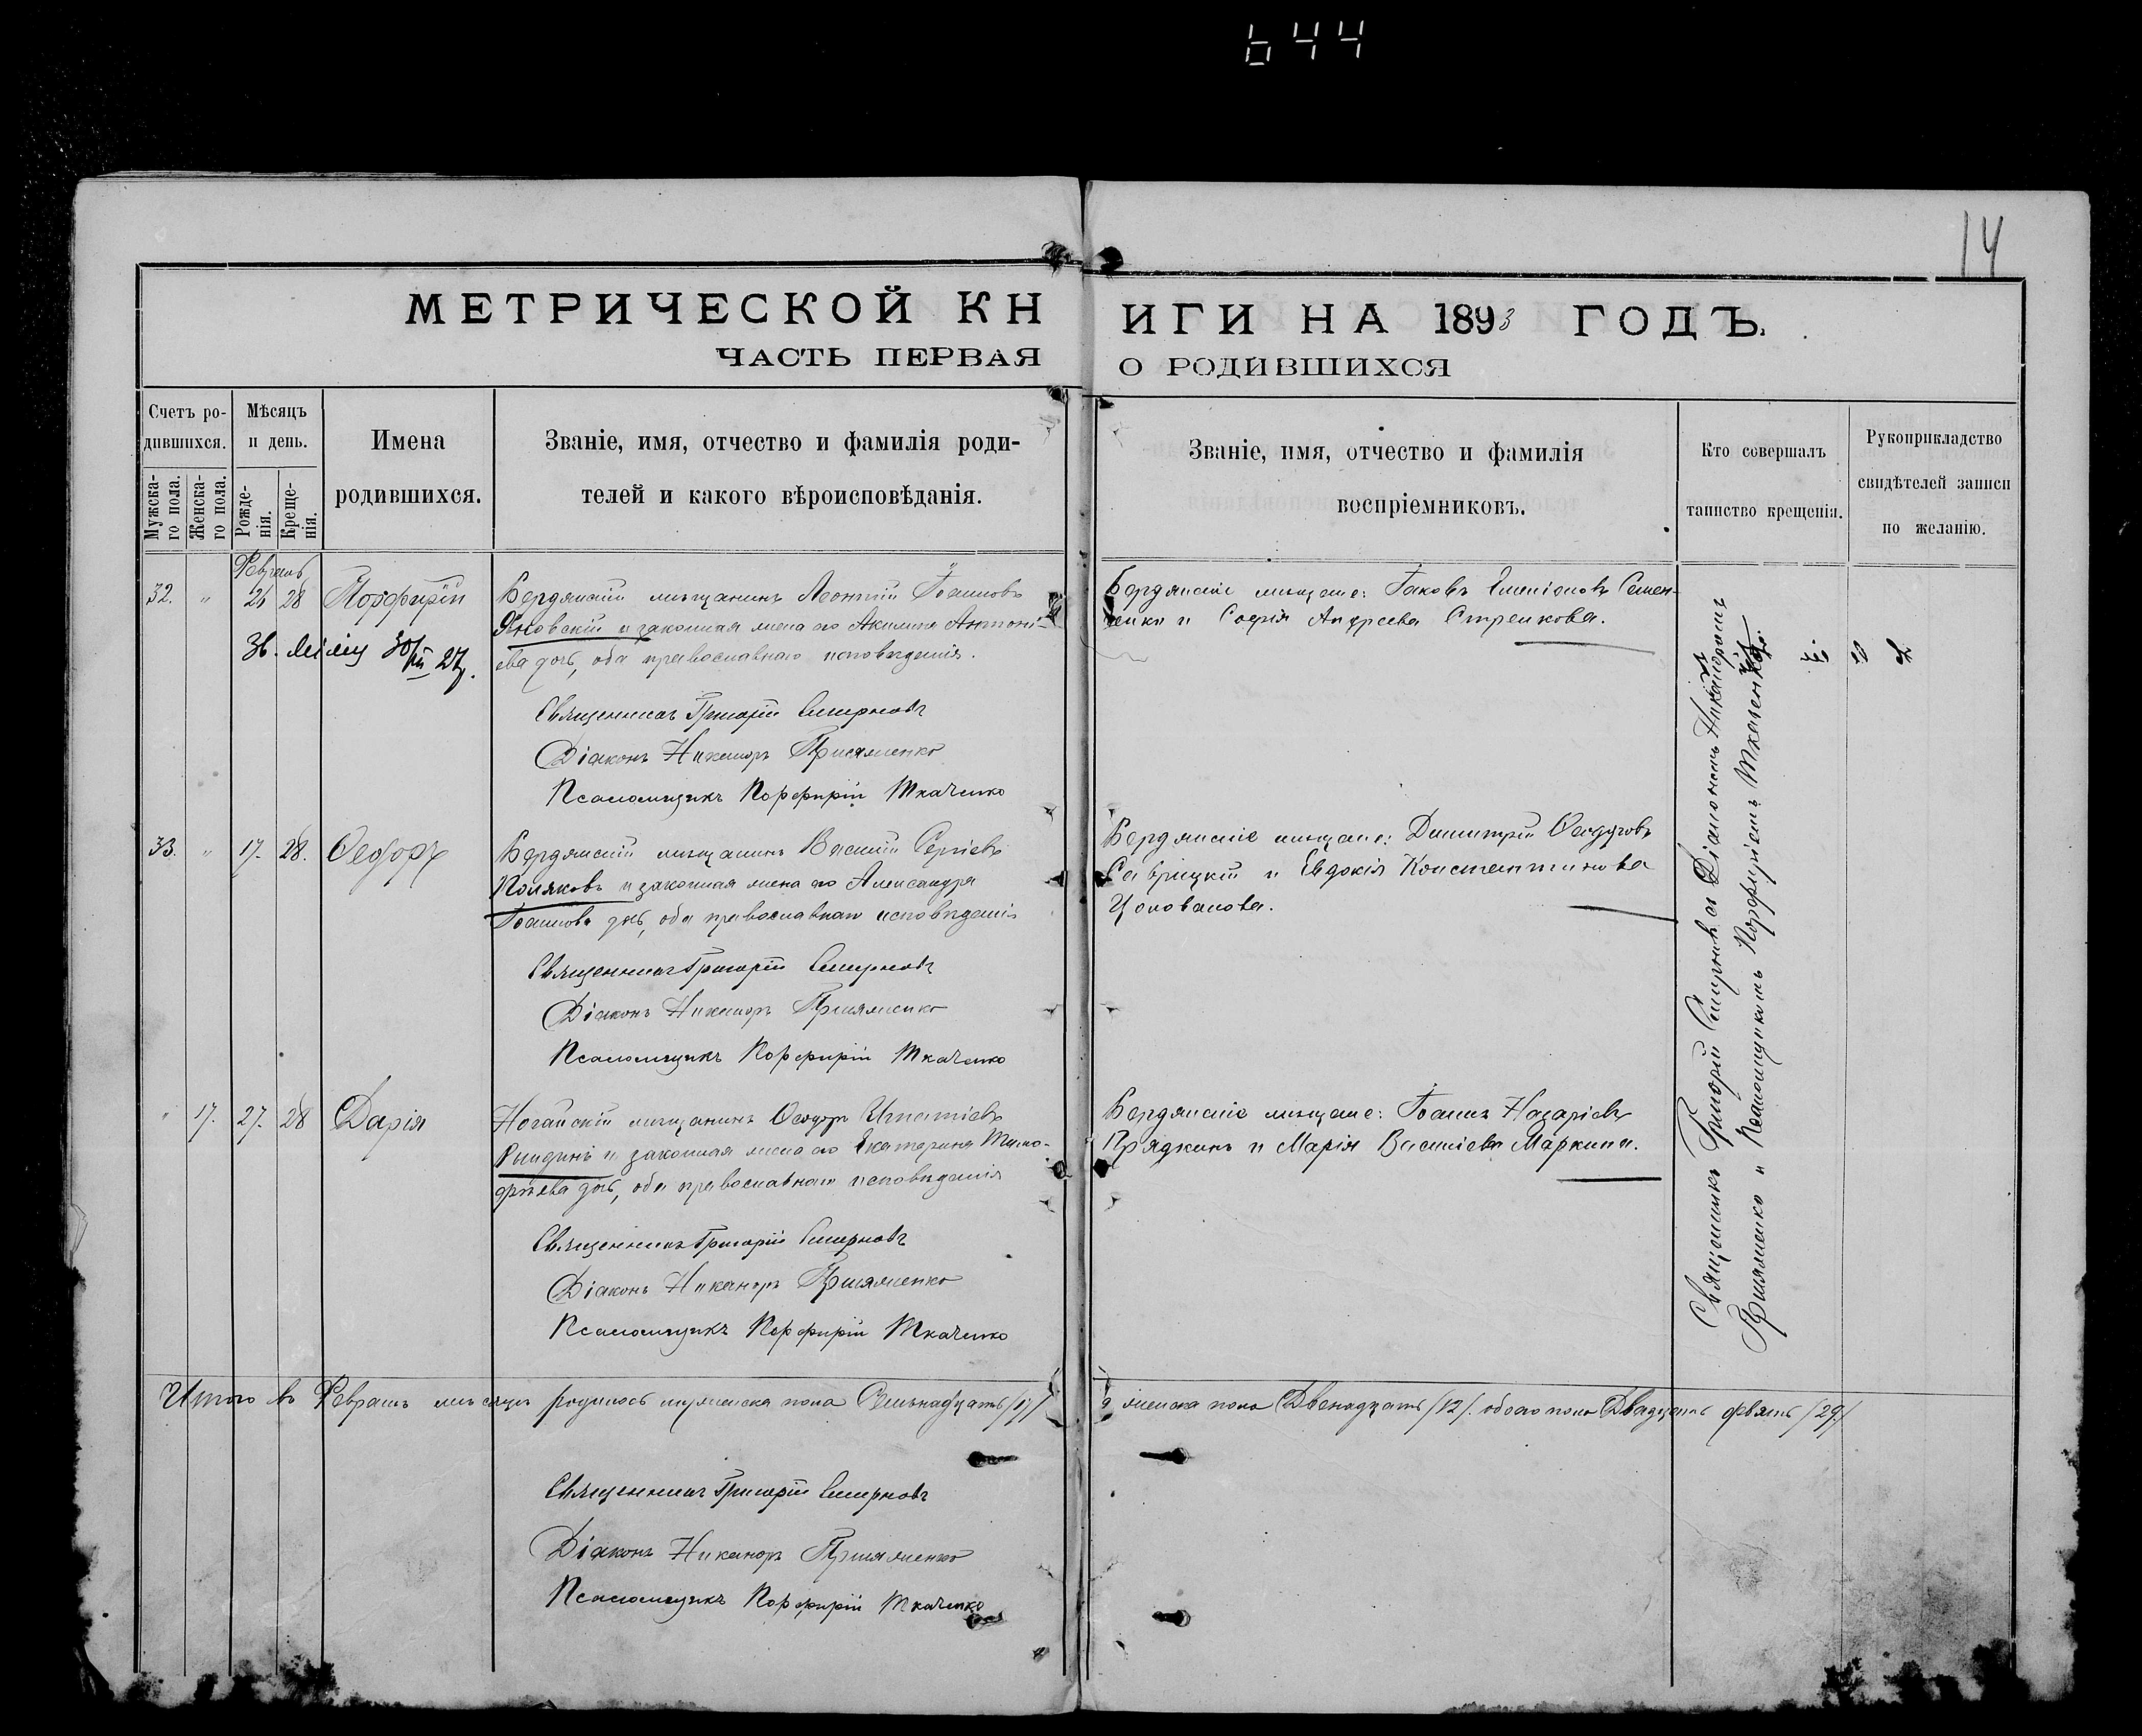 644
14
МЕТРИЧЕСКОЙ КНИГИ НА 1893 ГОДЪ.
ЧАСТЬ ПЕРВАЯ О РОДИВШИХСЯ
Счетъ ро-
дившихся.
Мужска-
го пола.
Женска-
го пола.
Мѣсяцъ
и день.
Рожде-
нія.
Креще-
нія.
Имена
родившихся.
Званіе, имя, отчество и фамилія роди-
телей и какого вѣроисповѣданія.
Званіе, имя, отчество и фамилія
воспріемниковъ.
Кто совершалъ
таинство крещенія.
Рукоприкладство
свидѣтелей записи
по желанію.
Февраль
32. " 26 28 Порфирій
Бердянскій мѣщанинъ Леонтій Іоанновъ
Яновскій и законная жена его Акилина Антоні-
ева дочь, оба православнаго исповѣданія.
Священникъ Григорій Смирновъ
Діаконъ Никаноръ Присяженко
Псаломщикъ Порфирій Ткаченко
Бердянскіе мѣщане: Іаковъ Семен-
енко и Софія Андреева Стренкова.
33. " 17. 28. Ѳеодоръ
Бердянскій мѣщанинъ Василій Сергіевъ
Поляковъ и законная жена его Александра
Іоаннова дочь, оба православнаго исповѣданія
Священникъ Григорій Смирновъ
Діаконъ Никаноръ Присяженко
Псаломщикъ Порфирій Ткаченко
Бердянскіе мѣщане: Димитрій Ѳеодоровъ
Саврицкій и Евдокія Константинова
Цолованова.
" 17. 27. 28 Дарія
Ногайскій мѣщанинъ Ѳеодоръ Игнатіевъ
Рындинъ и законная жена его Екатерина Тимо-
фѣева дочь, оба православнаго исповѣданія
Священникъ Григорій Смирновъ
Діаконъ Никаноръ Присяженко
Псаломщикъ Порфирій Ткаченко
Бердянскіе мѣщане: Іоаннъ Назаріевъ
Прядкинъ и Марія Василіева Маркина.
Священникъ Григорій Смирновъ съ Діакономъ Никаноромъ
Присяженко и Псаломщикомъ Порфиріемъ Ткаченко.
Итого въ Февралѣ мѣсяцѣ родилось мужеска пола Семнадцать /17/ женска пола Двенадцать /12/. обоего пола Двадцать девять /29/
Священникъ Григорій Смирновъ
Діаконъ Никаноръ Присяженко
Псаломщикъ Порфирій Ткаченко